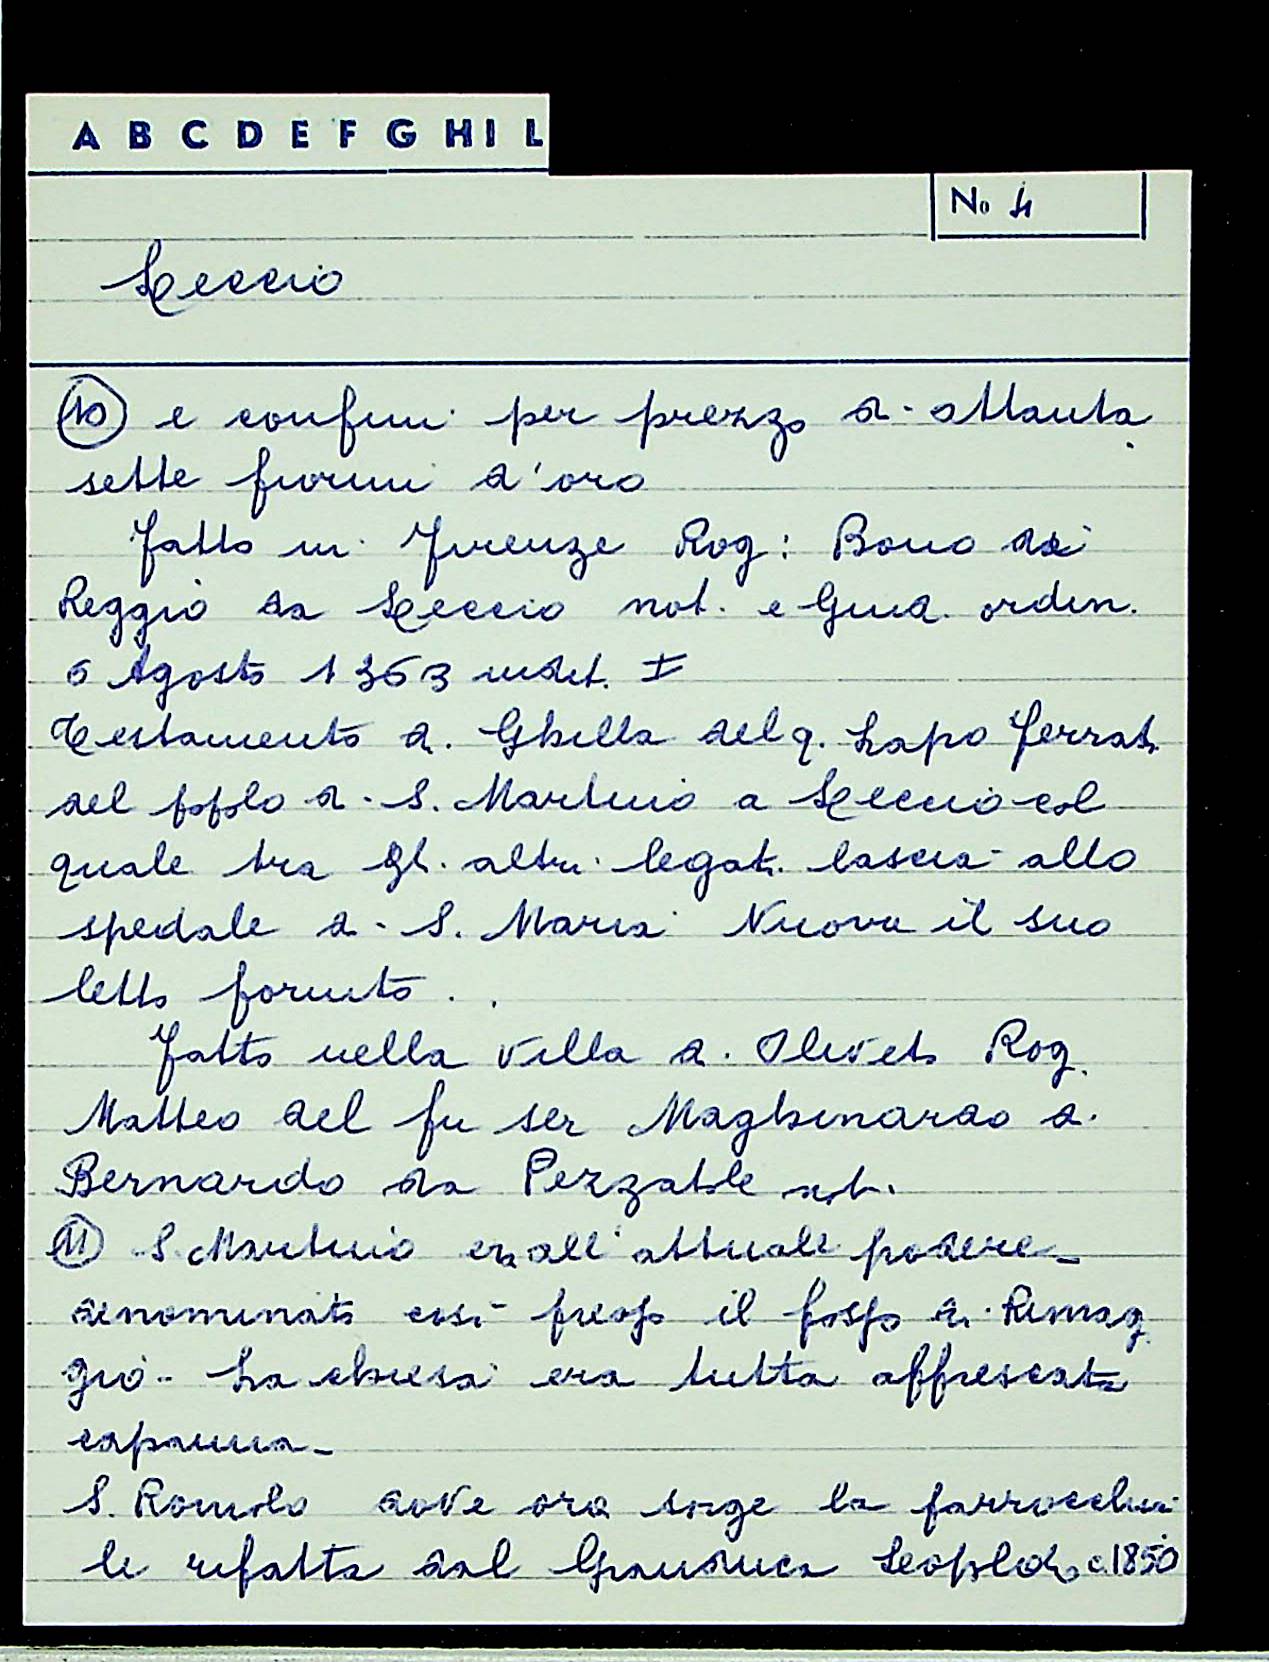 A B C D E F G H I L
No 4
Leccio
10 e confini per prezzo di ottanta
sette fiorini d'oro
Fatto in Firenze Rog: Bono di
Reggio da Leccio not. e Giud. ordin.
6 Agosto 1363 indit. I
Testamento di Ghilla del q. Lapo Ferrati
del popolo di S. Martino a Leccio col
quale tra gli altri legati lascia allo
spedale di S. Maria Nuova il suo
letto fornito.
Fatto nella villa di Oliveto Rog.
Matteo del fu ser Maghinardo di
Bernardo da Pezzatole not.
11 S. Martino era all'attuale podere
denominato così presso il fosso di Rimag
gio - La chiesa era tutta affrescata
capanna -
S. Romolo dove ora sorge la parrocchia
le rifatta dal Granduca Leopoldo c. 1850